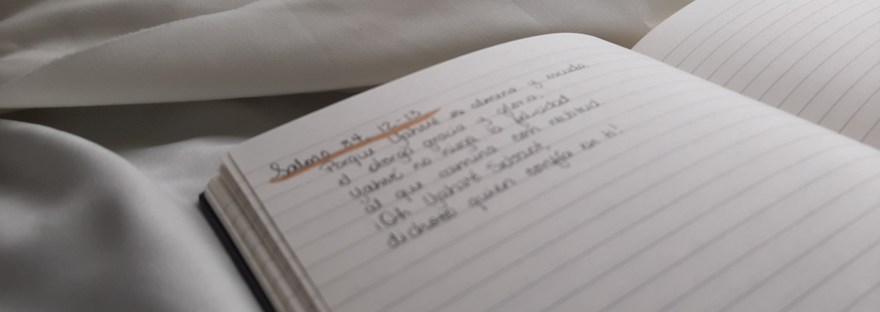 Salmo 84, 12-13
Porque Yahvé es almena y escudo
él otorga gracia y gloria.
Yahvé no niega la felicidad
al que camina con rectitud
¡Oh Yahvé Sebaot,
dichoso quien confía en ti!